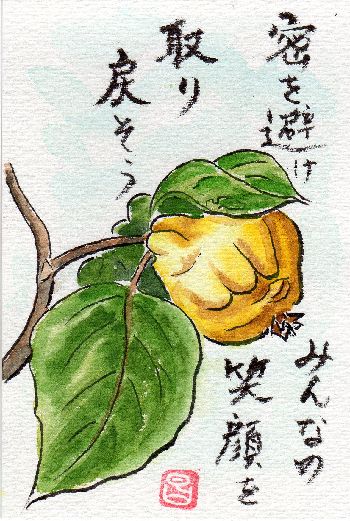 密を避け
取り
戻そう
みんなの
笑顔を